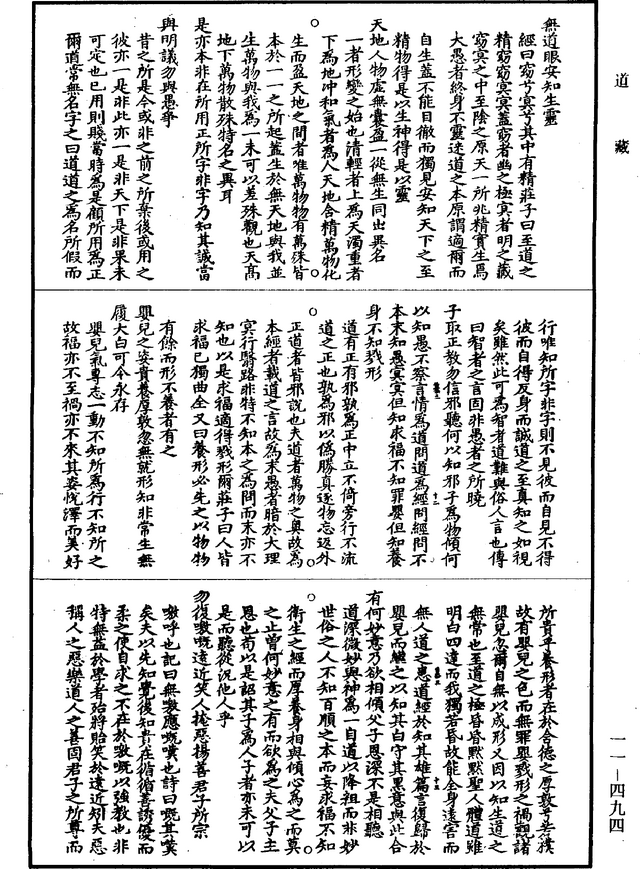 道藏
無道眼安知生靈
經曰窈兮冥兮其中有精莊子曰至道之
精窈窈冥冥蓋窈者幽之極冥者明之藏
窈冥之中至陰之原天一所兆精實生焉
大愚者終身不靈迷道之本原謂適爾而
自生蓋不能目徹而獨見安知天下之至
精物得是以生神得是以靈
天地人物虛無囊盈一從無生同出異名
一者形變之始也清輕者上為天濁重者
下為地沖和氣者為人天地合精萬物化
生而盈天地之間者唯萬物物有萬殊皆
本於一一之所起蓋生於無天地與我並
生萬物與我為一未可以差殊觀也天高
地下萬物散殊特名之異耳
是亦本非在所用正所字非字乃知其誠當
與明議勿與愚爭
昔之所是今或非之前之所棄後或用之
彼亦一是非此亦一是非天下是非果未
可定也已用則賤當時為是顧所用為正
爾道常無名字之曰道道之為名所假而
行唯知所字非字則不見彼而自見不得
彼而自得反身而誠道之至真知之如視
矣雖然此可為智者道難與俗人言也傳
曰智者之言固非愚者之所曉
子取正教勿信邪聽何以知邪子為物傾何
以知愚不察言情為道問道為經問經問不
本末知愚冥冥但知求福不知罪嬰但知養
身不知戮形
道有正有邪孰為正中立不倚旁行不流
道之正也孰為邪以偽勝真逐物忘返外
正道者皆邪說也夫道者萬物之奧故為
本經者載道之言故為末愚者暗於大理
冥行醫路非特不知本之為問而末亦不
知也以是求福適得戮形爾莊子曰人皆
求福已獨曲全又曰養形必先之以物物
有餘而形不養者有之
嬰兒之姿貴養厚敦忽無就形知非常生無
履大白可令永存
嬰兒氣專志一動不知所為行不知所之
故福亦不至禍亦不來其姿悅澤而美好
所貴乎養形者在於含德之厚敦兮若樸
故有嬰兒之色而無罪嬰戮形之禍觀諸
嬰兒忽爾自無以成形又因以知生道之
無常也至道之極昏昏默默聖人體道雖
明白四達而我獨若昏故能全身遠害而
無人道之患道經於知其雄篇言復歸於
嬰兒而繼之以知其白守其黑意與此合
有何妙意乃欲相傾父子恩深不是相聽
道深微妙與神為一自道以降粗而非妙
世俗之人不知百順之本而妄求福不知
衛生之經而厚養身相與傾心為之而莫
之止曾何妙意之有而欲為之夫父子主
恩也苟以是詔其子為人子者亦未可以
是而聽從況他人乎
勿復嗷嘅遠近笑人掩惡揚善君子所宗
嗷呼也記曰無嗷應嘅嘆也詩曰嘅其嘆
矣夫以先知覺後知貴在循循善誘優而
柔之使自求之不在於嗷嘅以強教也非
特無益於學者殆將貽笑於遠近矧夫惡
稱人之惡樂道人之善固君子之所尊而
一一－四九四